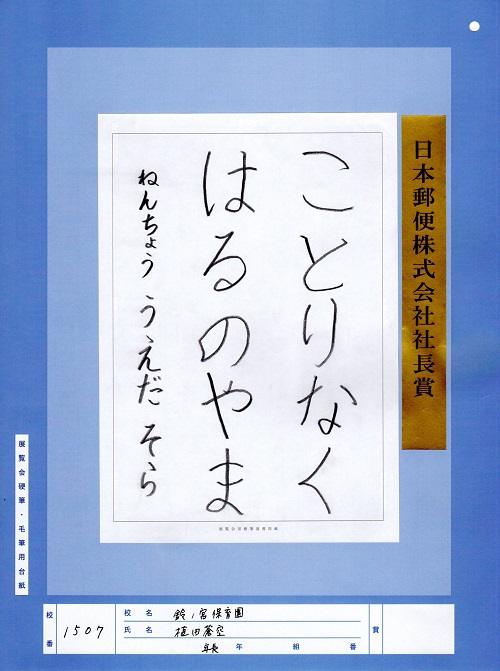 日本郵便株式会社社長賞
ことりなく
はるのやま
ねんちょう うえだ そら
展覧会硬筆・毛筆用台紙
校番 1507
校名 鈴ノ宮保育園
氏名 植田蒼空
年長 年 組 番
賞